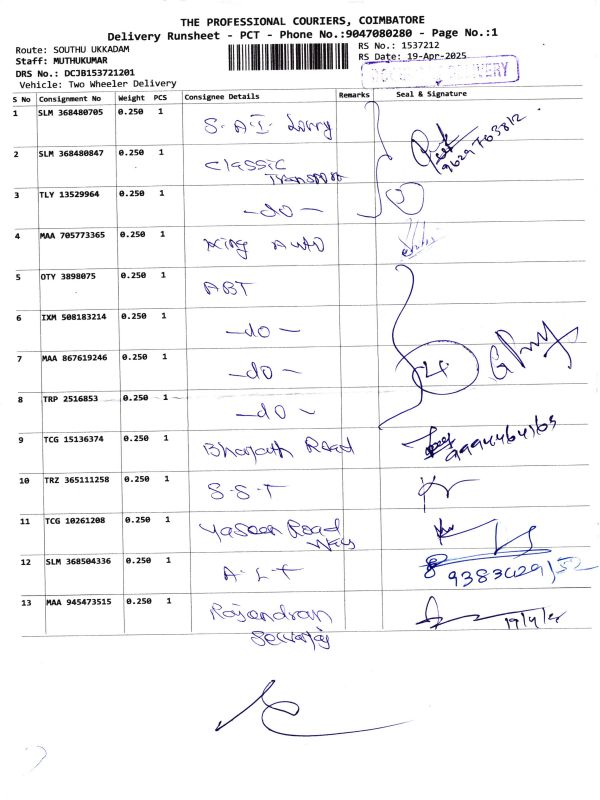 THE PROFESSIONAL COURIERS, COIMBATORE
Delivery Runsheet - PCT - Phone No.:9047080280 - Page No.:1
Route: SOUTHU UKKADAM
RS No.: 1537212
Staff: MUTHUKUMAR
RS Date: 19-Apr-2025
DRS No.: DCJB153721201
DELIVERY
Vehicle: Two Wheeler Delivery
S No Consignment No Weight PCS Consignee Details Remarks Seal & Signature
1 SLM 368480705 0.250 1 S.A.I. Lorry
2 SLM 368480847 0.250 1 Classic Transport
9629763812
3 TLY 13529964 0.250 1 -do-
4 MAA 705773365 0.250 1 King Auto
5 OTY 3898075 0.250 1 ABT
6 IXM 508183214 0.250 1 -do-
7 MAA 867619246 0.250 1 -do- 4
8 TRP 2516853 0.250 1 -do-
9 TCG 15136374 0.250 1 Bharath Road
10 TRZ 365111258 0.250 1 S.S.T
11 TCG 10261208 0.250 1 Yaseen Road Ways
12 SLM 368504336 0.250 1 A.L.T
13 MAA 945473515 0.250 1 Rajendran